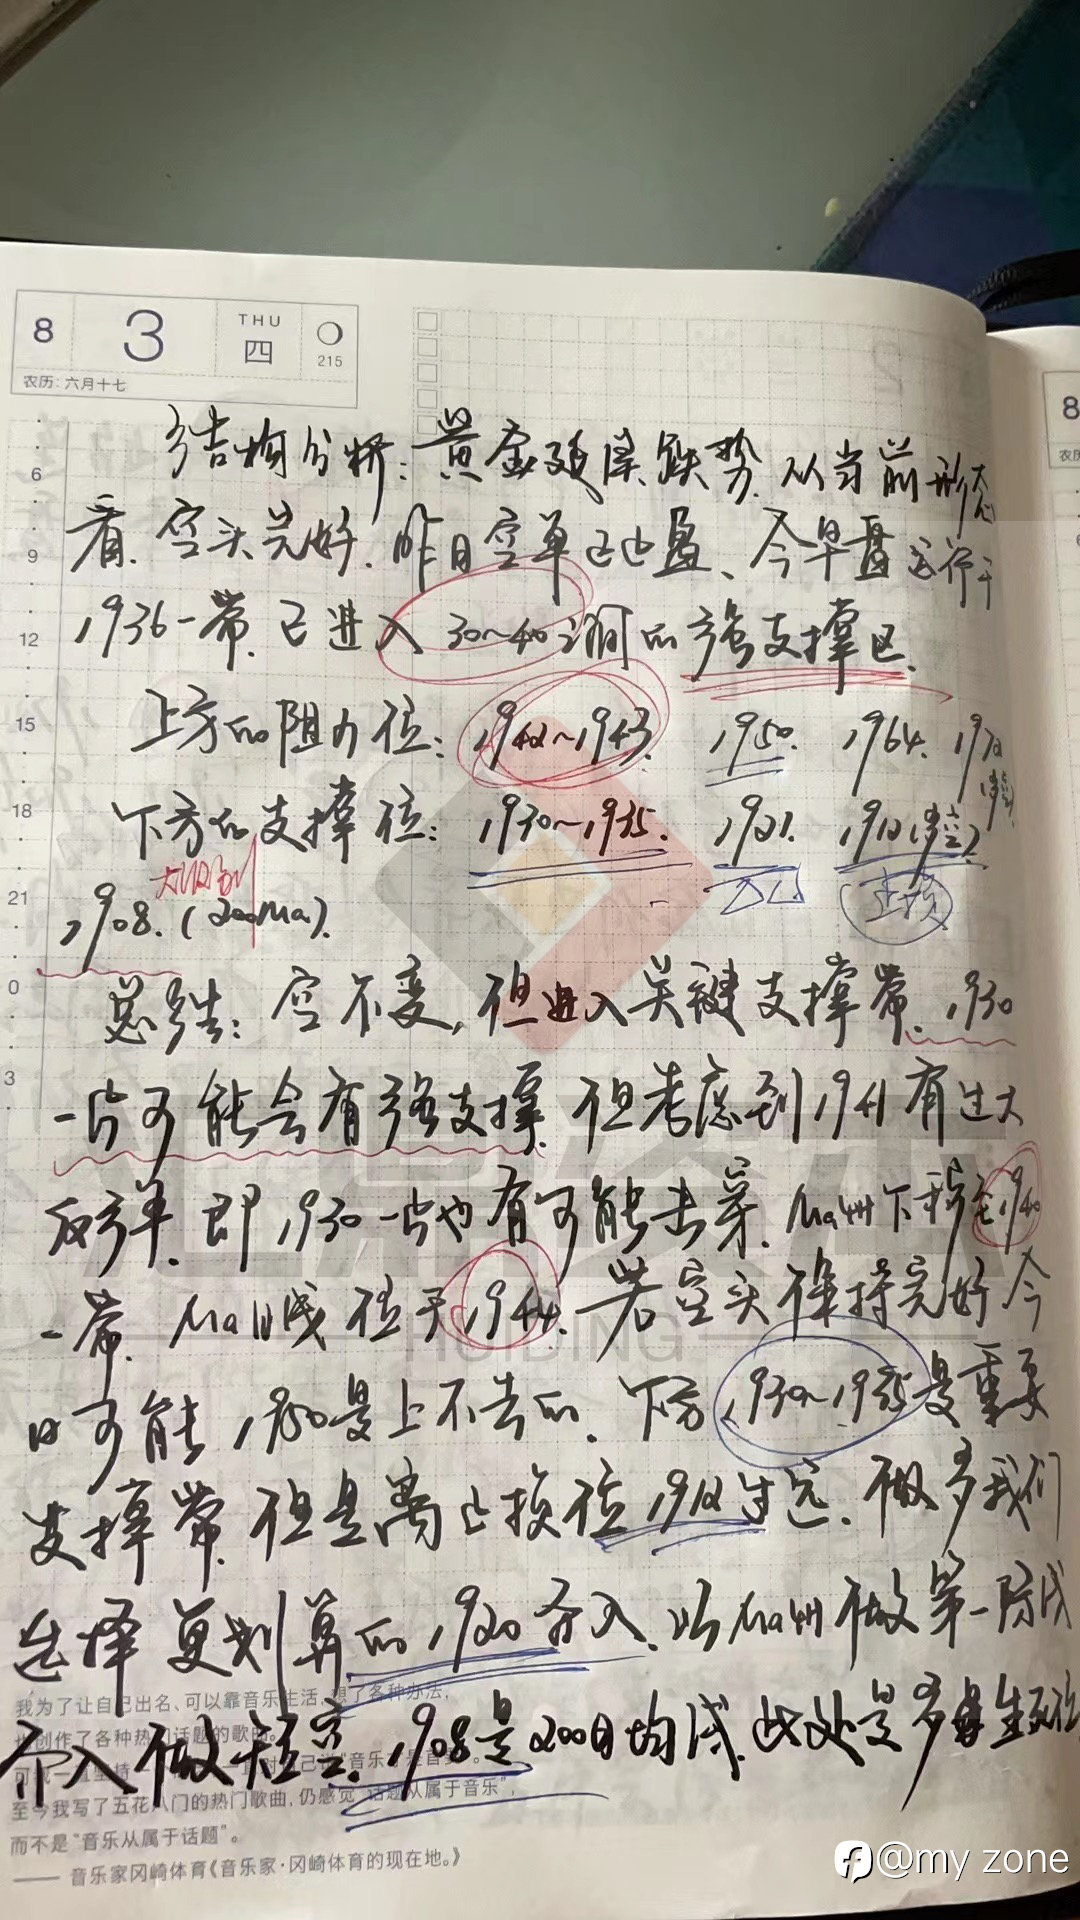 8 3 THU 四 215
农历：六月十七
结构分析：黄金延续跌势.从当前形态
看.空头完好.昨日空单已出盈、今早盘运行于
1936一带.已进入30~40之间的强支撑区.
上方的阻力位：1942~1943. 1950. 1964. 197
下方的支撑位：1930~1935. 1921. 1912(多空)
1908.(200Ma).
总结：空不变，但进入关键支撑带.1930
一带可能会有强支撑.但考虑到1941有过大
反弹.即1930一带也有可能击穿.Ma4H下移至1940
一带.Ma 线位于1944.若空头保持完好今
日可能1950是上不去的.下方1930~1935是重要
支撑带.但是离止损位1912过远.做多我们
选择更划算的1920介入.以Ma4H做第一防线
介入做短空.1908是200日均线.此处是多
我为了让自己出名、可以靠音乐生活,想了各种办法,
也创作了各种热门话题的歌曲。
至今我写了五花八门的热门歌曲,仍感觉"话题从属于音乐",
而不是"音乐从属于话题"。
—— 音乐家冈崎体育《音乐家·冈崎体育的现在地。》
HUIDING
6
9
12
15
18
21
0
3
8
@my zone